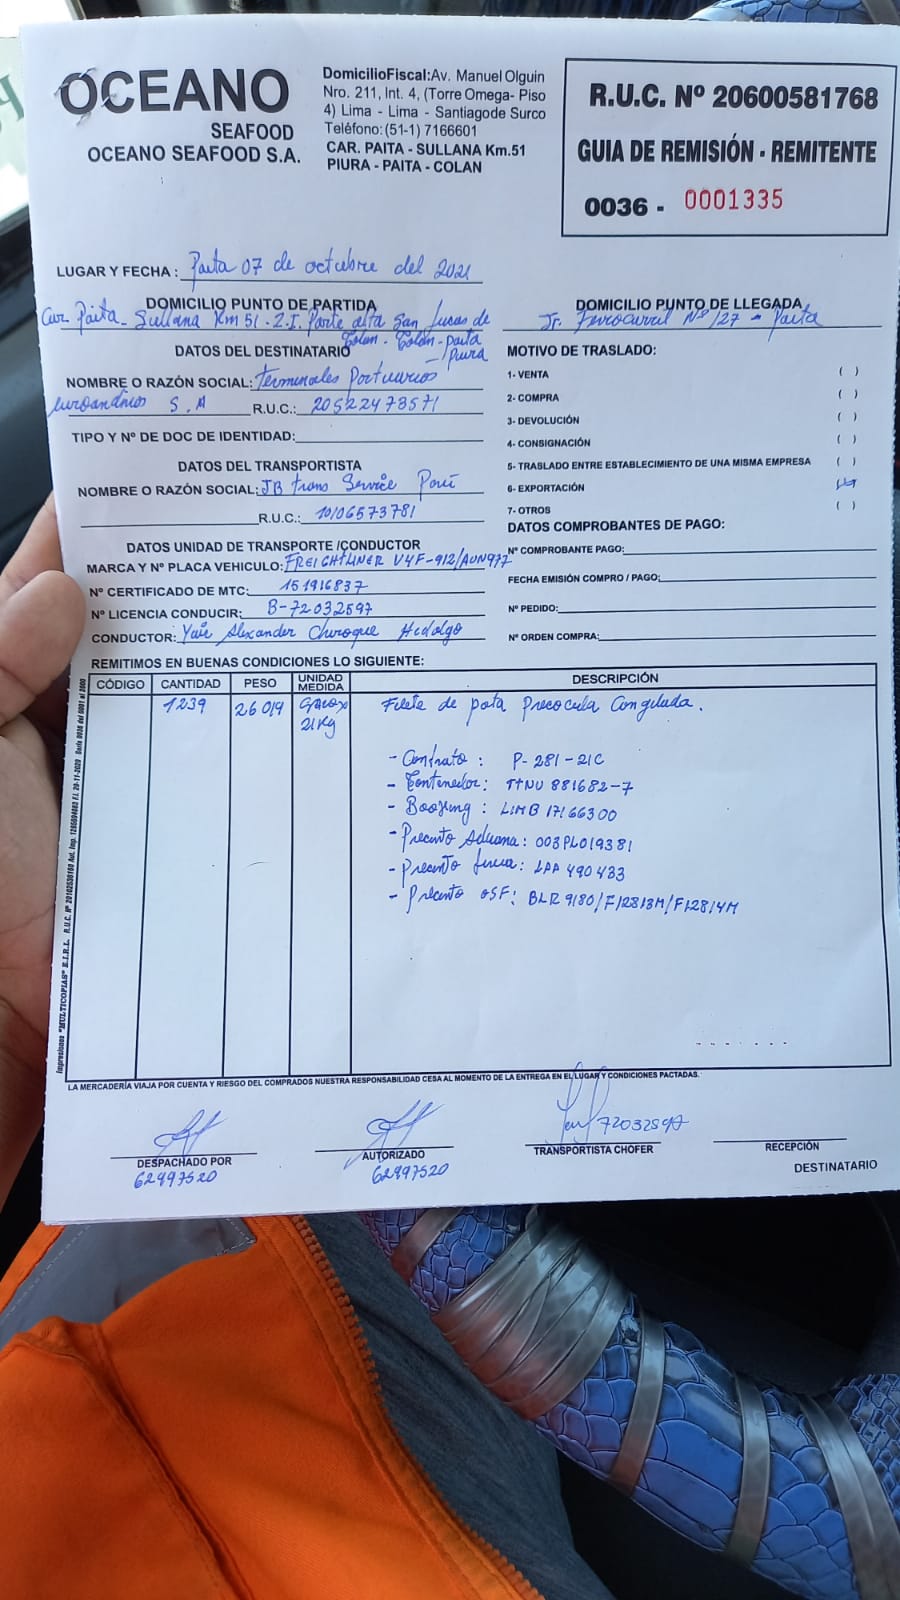 OCEANO
SEAFOOD
OCEANO SEAFOOD S.A.
DomicilioFiscal:Av. Manuel Olguin
Nro. 211, Int. 4, (Torre Omega- Piso
4) Lima - Lima - Santiagode Surco
Teléfono:(51-1) 7166601
CAR. PAITA - SULLANA Km.51
PIURA - PAITA - COLAN
R.U.C. Nº 20600581768
GUIA DE REMISIÓN - REMITENTE
0036 - 0001335
LUGAR Y FECHA : Paita 07 de octubre del 2021
DOMICILIO PUNTO DE PARTIDA
Car. Paita - Sullana Km 51 - Z.I. Parte alta San Lucas de
Colan - Colan - paita
- Piura
DOMICILIO PUNTO DE LLEGADA
Jr. Ferrocarril Nº 127 - Paita
DATOS DEL DESTINATARIO
NOMBRE O RAZÓN SOCIAL: Terminales Portuarios
euroandinos S.A R.U.C.: 20522473571
TIPO Y Nº DE DOC DE IDENTIDAD:
DATOS DEL TRANSPORTISTA
NOMBRE O RAZÓN SOCIAL: JB trans Service Perú
R.U.C.: 10106573781
DATOS UNIDAD DE TRANSPORTE /CONDUCTOR
MARCA Y Nº PLACA VEHICULO: FREIGHTLINER V4F-912/AUN977
Nº CERTIFICADO DE MTC: 151916837
Nº LICENCIA CONDUCIR: B-72032597
CONDUCTOR: Yair Alexander Chiroque Hidalgo
MOTIVO DE TRASLADO:
1- VENTA ( )
2- COMPRA ( )
3- DEVOLUCIÓN ( )
4- CONSIGNACIÓN ( )
5- TRASLADO ENTRE ESTABLECIMIENTO DE UNA MISMA EMPRESA ( )
6- EXPORTACIÓN
7- OTROS ( )
DATOS COMPROBANTES DE PAGO:
Nº COMPROBANTE PAGO:
FECHA EMISIÓN COMPRO / PAGO:
Nº PEDIDO:
Nº ORDEN COMPRA:
REMITIMOS EN BUENAS CONDICIONES LO SIGUIENTE:
CÓDIGO CANTIDAD PESO UNIDAD MEDIDA DESCRIPCIÓN
1239 26019 Filete de pota Precocida Congelada.
21Kg
- Contrato : P-281-21C
- Contenedor: TTNU 881682-7
- Booking : LIMB 17166300
- Precinto Aduana: 003PL019381
- Precinto Linea: LAA 490433
- Precinto OSF: BLR 9180/F12813M/F12814M
Impresiones "MULTICOPIAS" E.I.R.L. R.U.C. Nº 20102536169 Aut. Imp. 1285694082 F.I. 20-11-2020 Serie 0036 del 0001 al 2000
LA MERCADERÍA VIAJA POR CUENTA Y RIESGO DEL COMPRADOS NUESTRA RESPONSABILIDAD CESA AL MOMENTO DE LA ENTREGA EN EL LUGAR Y CONDICIONES PACTADAS.
72032597
DESPACHADO POR
62997520
AUTORIZADO
62997520
TRANSPORTISTA CHOFER
RECEPCIÓN
DESTINATARIO